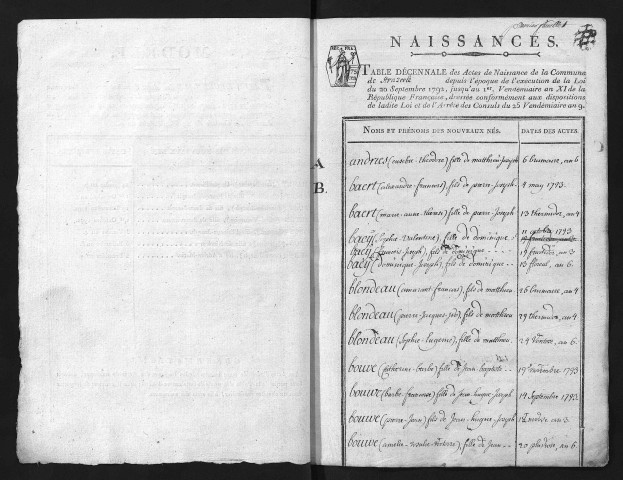 NAISSANCES.
TABLE DÉCENNALE des Actes de Naissance de la Commune
de Arnzeele depuis l'époque de l'exécution de la Loi
du 20 Septembre 1792, jusqu'au 1er. Vendémiaire an XI de la
République Française, dressée conformément aux dispositions
de ladite Loi et de l'Arrêté des Consuls du 25 Vendémiaire an 9.
NOMS ET PRÉNOMS DES NOUVEAUX NÉS. DATES DES ACTES.
A
andries ( -théodore) fille de matthieu-joseph 6 brumaire, an 6
B.
baert (alexandre-francois), fils de pierre-joseph. 4 may 1793.
baert (marie-anne-thérèse) fille de pierre-joseph 13 thermidor, an 4
baey (Sophie-Valentine), fille de dominique 11 octobre 1793
baey (francois-joseph), fils de dominique 19 fructidor, an 3
baey (dominique-joseph), fils de dominique 13 floreal, an 6.
blondeau (francois), fils de matthieu 26 brumaire, an 4
blondeau (pierre-jacques), fils de matthieu 29 thermidor, an 4
blondeau (Sophie-Eugenie), fille de matthieu. 24 Ventôse, an 6.
bouwe (catherine-barbe) fille de jean-baptiste 19 novembre 1793
bouwe (barbe-francoise) fille de jean-hugue-joseph 14 Septembre 1793.
bouwe (pierre-jean) fils de jean-hugue-joseph an 3.
bouwe (amelie-victoire), fille de jean 20 pluviose, an 6.